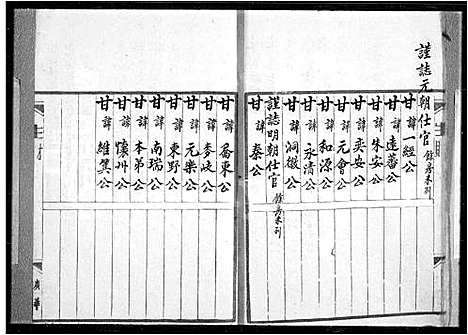 謹誌元朝仕官 餘房未列
甘諱一經公
甘諱達蕃公
甘諱朱安公
甘諱奕安公
甘諱元會公
甘諱和源公
甘諱永清公
甘諱洞徽公
謹誌明朝仕官 餘房未列
甘諱秦公
甘諱喬東公
甘諱麥岐公
甘諱元樂公
甘諱東野公
甘諱南瑞公
甘諱本弟公
甘諱懷州公
甘諱維箕公